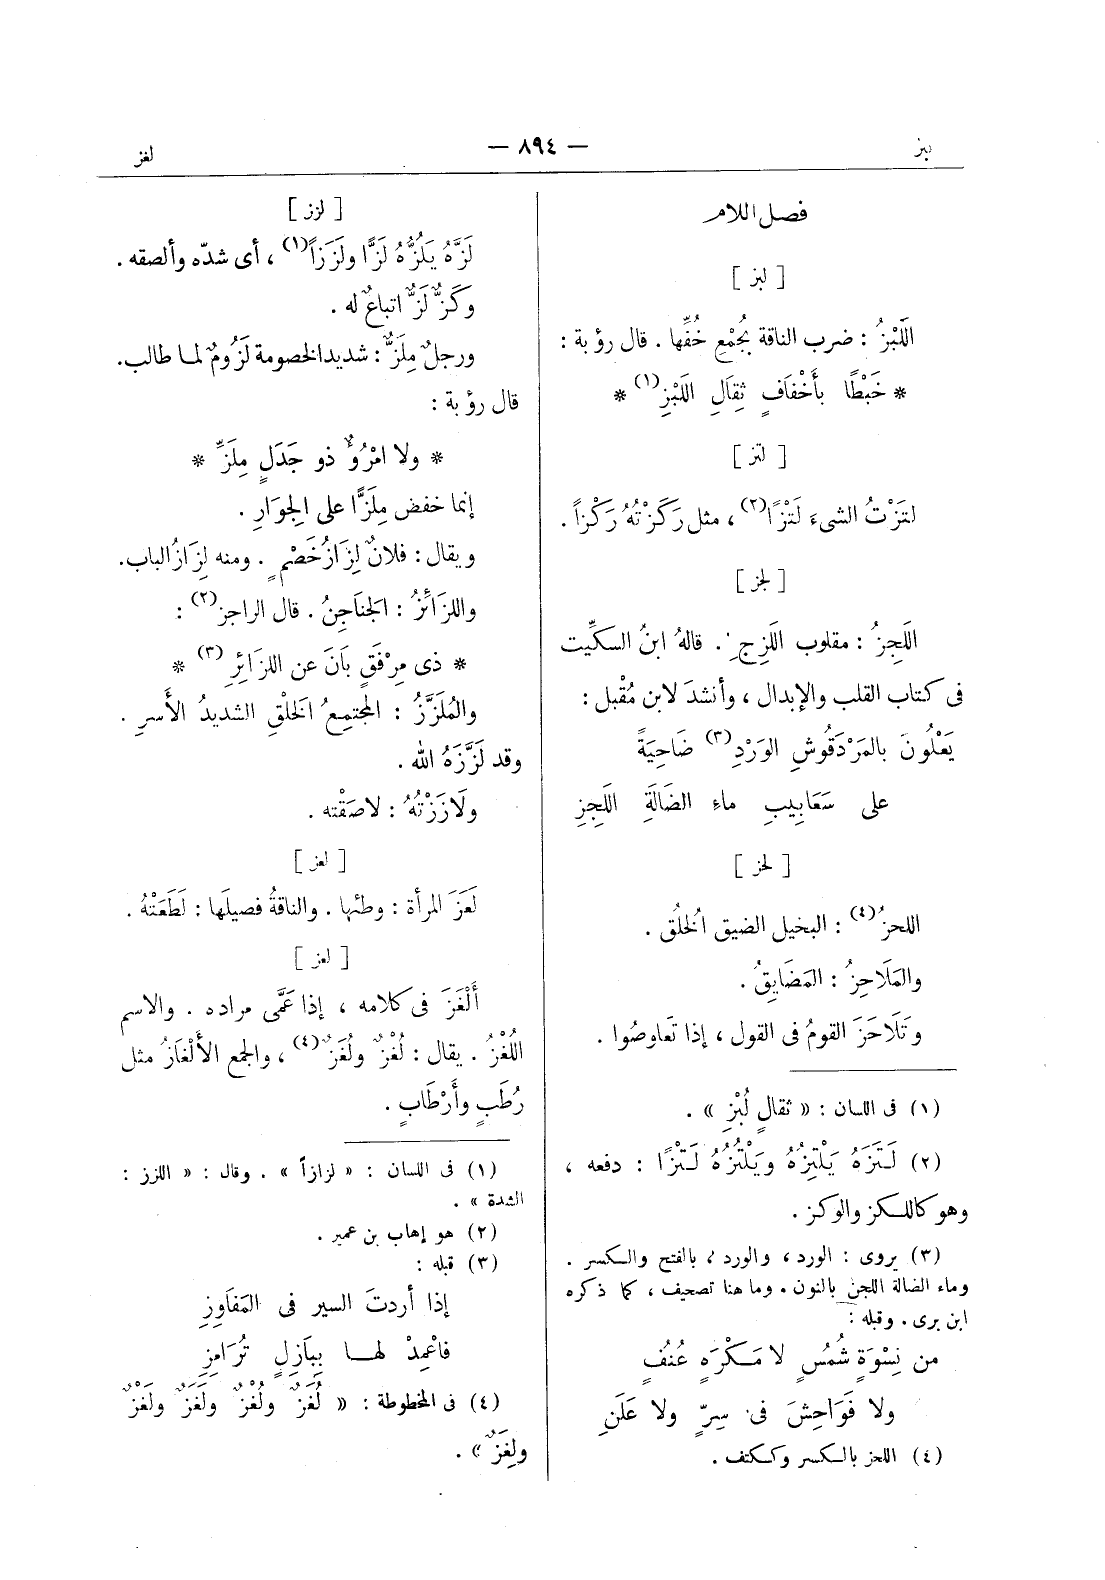 لبز
— ٨٩٤ —
لغز
فصل اللام
[ لبز ]
اللَبْزُ : ضرب الناقة بجُمْعِ خُفِّها . قال رؤبة :
* خَبْطًا بأَخْفَافٍ ثِقَالِ اللَبْزِ (١) *
[ لتز ]
لتَزْتُ الشىءَ لَتْزًا (٢) ، مثل رَكَزْتُهُ رَكْزاً .
[ لجز ]
اللَجِزُ : مقلوب اللَزِجِ . قالهُ ابنُ السكِّيت
فى كتاب القلب والإبدال ، وأنشدَ لابن مُقْبل :
يَعْلُونَ بالمَرْدَقُوشِ الوَرْدِ (٣) ضَاحِيَةً
على سَعَابِيبِ ماءِ الضَالَةِ اللَجِزِ
[ لحز ]
اللحزُ (٤) : البخيل الضيق الُخلُق .
والمَلَاحِزُ : المَضَايِقُ .
وتَلَاحَزَ القومُ فى القول ، إذا تَعاوصُوا .
(١) فى اللسان : « ثقالٍ لُبْزِ » .
(٢) لَتَزَهُ يَلْتِزُهُ ويَلْتُزُهُ لَتْزًا : دفعه ،
وهو كاللكز والوكز .
(٣) يروى : الورد ، والورد ، بالفتح والكسر .
وماء الضالة اللجن بالنون . وما هنا تصحيف ، كما ذكره
ابن برى . وقبله :
من نِسْوَةٍ شُمُسٍ لا مَكْرَهٍ عُنُفٍ
ولا فَوَاحِشَ فى سِرٍّ ولا عَلَنِ
(٤) اللحز بالكسر وككتف .
[ لزز ]
لَزَّهُ يَلُزُّهُ لَزًّا ولَزَزاً (١) ، أى شدّه وألصقه .
وكَزٌّ لَزٌّ اتباعٌ له .
ورجلٌ مِلَزٌّ : شديد الخصومة لَزُومٌ لما طالب .
قال رؤبة :
* ولا امْرُؤٌ ذو جَدَلٍ مِلَزِّ *
إنما خفض مِلَزًّا على الجِوَارِ .
ويقال : فلانٌ لِزَازُ خَصْمٍ . ومنه لِزَازُ الباب .
واللزَائِزُ : الجنَاجِنُ . قال الراجز (٢) :
* ذى مِرْفَقٍ بَانَ عن اللزَائِزِ (٣) *
والمُلَزَّزُ : المجتمِعُ الَخلْقِ الشديدُ الأَسرِ .
وقد لَزَّزَهُ الله .
ولَازَزْتُهُ : لاصَقْته .
[ لعز ]
لَعَزَ المرأة : وطئها . والناقةُ فصيلَها : لَطَعَتْهُ .
[ لغز ]
أَلْغَزَ فى كلامه ، إذا عَمَّى مراده . والاسم
اللُغْزُ . يقال : لُغْزٌ ولُغَزٌ (٤) ، والجمع الأَلْغَازُ مثل
رُطَبٍ وأَرْطَابٍ .
(١) فى اللسان : « لزازاً » . وقال : « اللزز :
الشدة » .
(٢) هو إهاب بن عمير .
(٣) قبله :
إذا أردتَ السير فى المَفَاوِزِ
فاعْمِدْ لها بِبَازِلٍ تُرَامِزِ
(٤) فى المخطوطة : « لُغَزٌ ولُغْزٌ ولَغَزٌ ولَغْزٌ
ولِغَزٌ » .